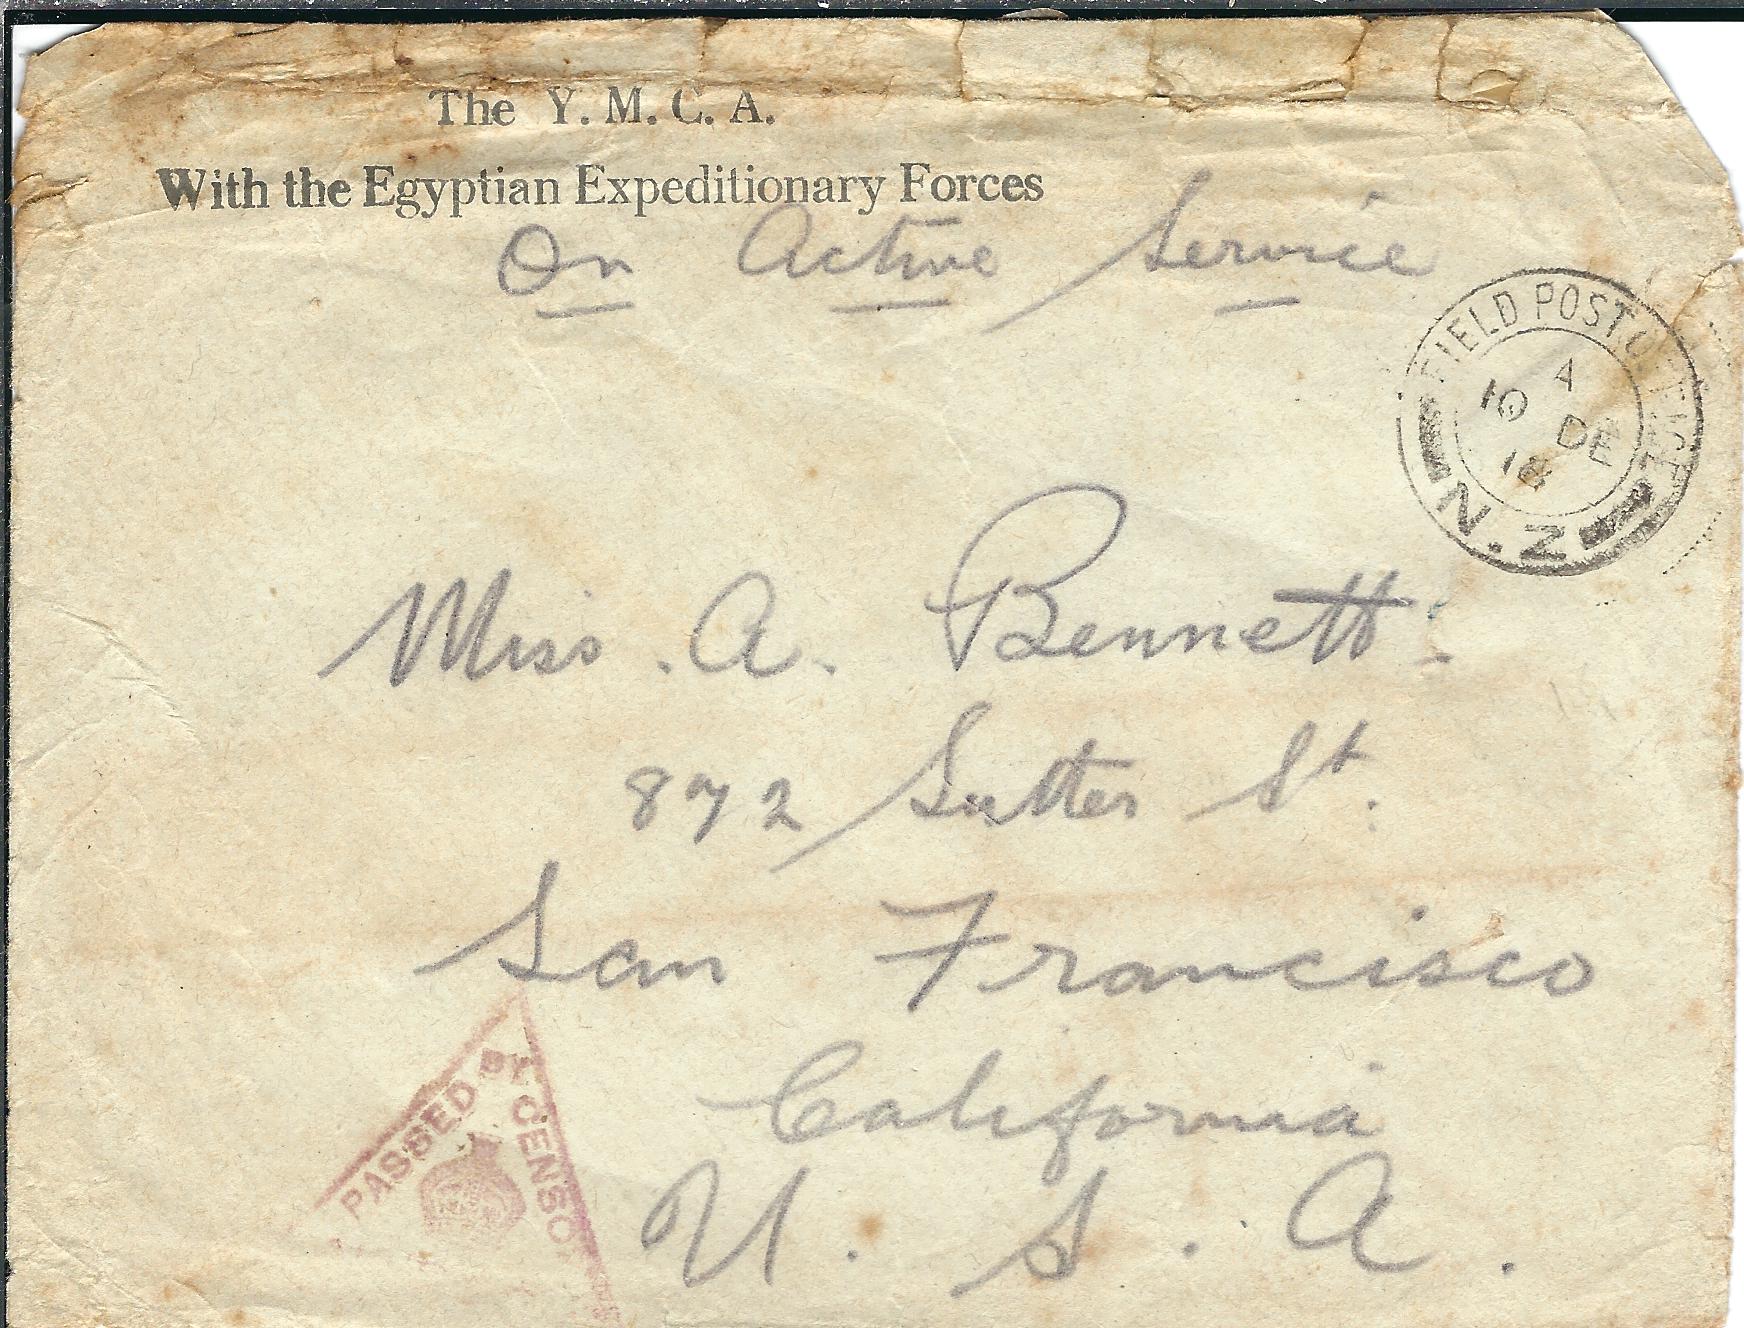 The Y. M. C. A.
With the Egyptian Expeditionary Forces
On Active Service
FIELD POST OFFICE
A
10 DE
N.Z
Miss. A. Bennett.
872 Sutter St.
San Francisco
California
U. S. A.
PASSED BY CENSOR